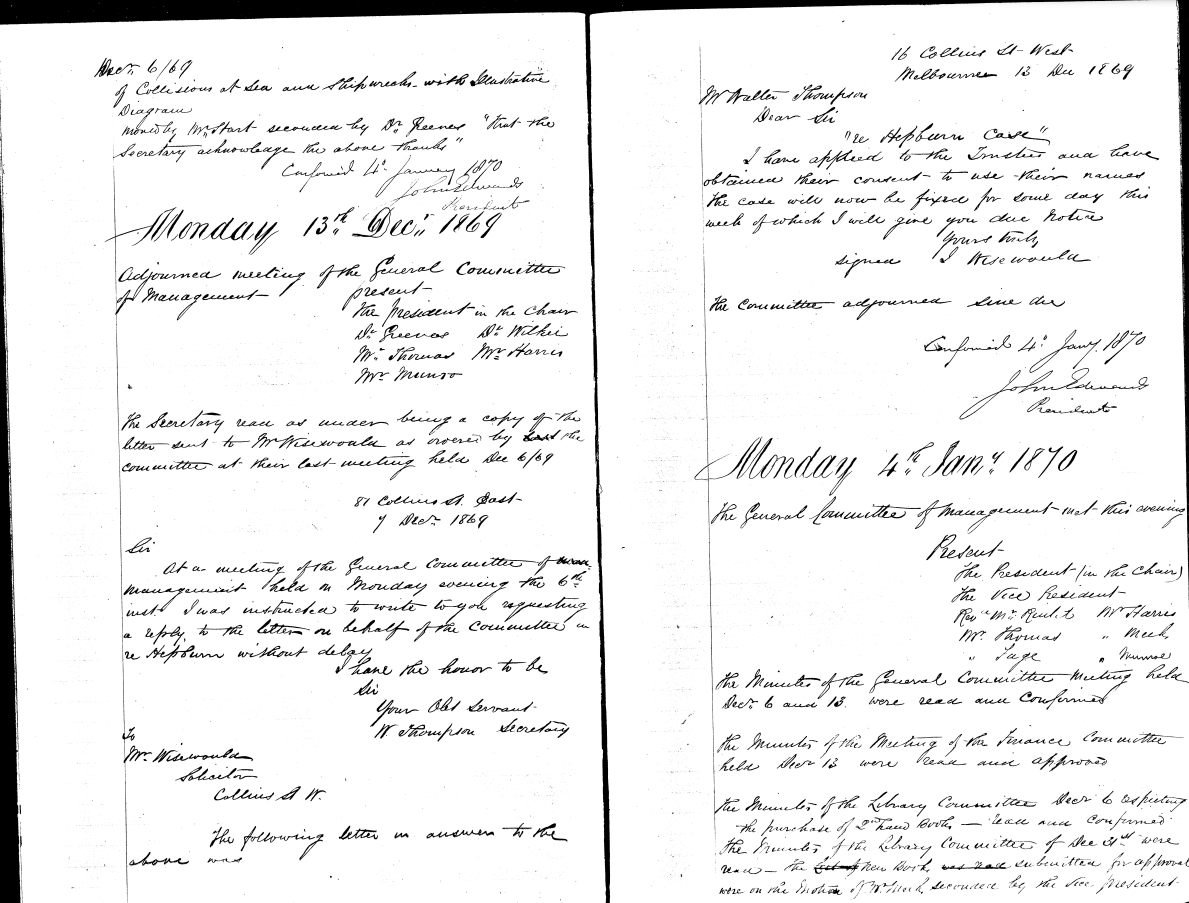 Decr. 6/69
of Collisions at Sea and Shipwrecks with Illustrative
Diagram
moved by Mr. Hart seconded by Dr. Greeves "that the
Secretary acknowledge the above thanks"
Confirmed 4th January 1870
John Edwards
President
Monday 13th Decr. 1869
Adjourned meeting of the General Committee
of Management
present
The President in the Chair
Dr. Greeves Dr. Wilkie
Mr. Thomas Mr. Harris
Mr. Munro
The Secretary read as under being a copy of the
letter sent to Mr Wisewould as ordered by last the
committee at their last meeting held Dec 6/69
81 Collins St. East
7 Decr. 1869
Sir
At a meeting of the General Committee of man
management held on Monday evening the 6th
inst I was instructed to write to you requesting
a reply to the letter on behalf of the Committee in
re Hepburn without delay
I have the honor to be
Sir
Your Obt Servant
W Thompson Secretary
To
Mr. Wisewould
Solicitor
Collins St W.
The following letter in answer to the
above was
16 Collins St West
Melbourne 13 Dec 1869
Mr Walter Thompson
Dear Sir
"re Hepburn Case"
I have applied to the Trustees and have
obtained their consent to use their names
the case will now be fixed for some day this
week of which I will give you due notice
Yours truly
signed J Wisewould
The committee adjourned sine die
Confirmed 4th Jany. 1870
John Edwards
President
Monday 4th Jany. 1870
The General Committee of Management met this evening
Present
The President (in the Chair)
The Vice President
Revd. Mr. Mr Harris
Mr. Thomas "
" "
The Minutes of the General Committee Meeting held
Decr. 6 and 13 were read and confirmed
The Minutes of the Meeting of the Finance Committee
held Decr 13 were read and approved
The Minutes of the Library Committee Decr 6 respecting
the purchase of 2nd hand Books — read and confirmed
The Minutes of the Library Committee of Dec 31st were
read — the list of New Books was read submitted for approval
were on the Motion of Mr. seconded by the Vice president